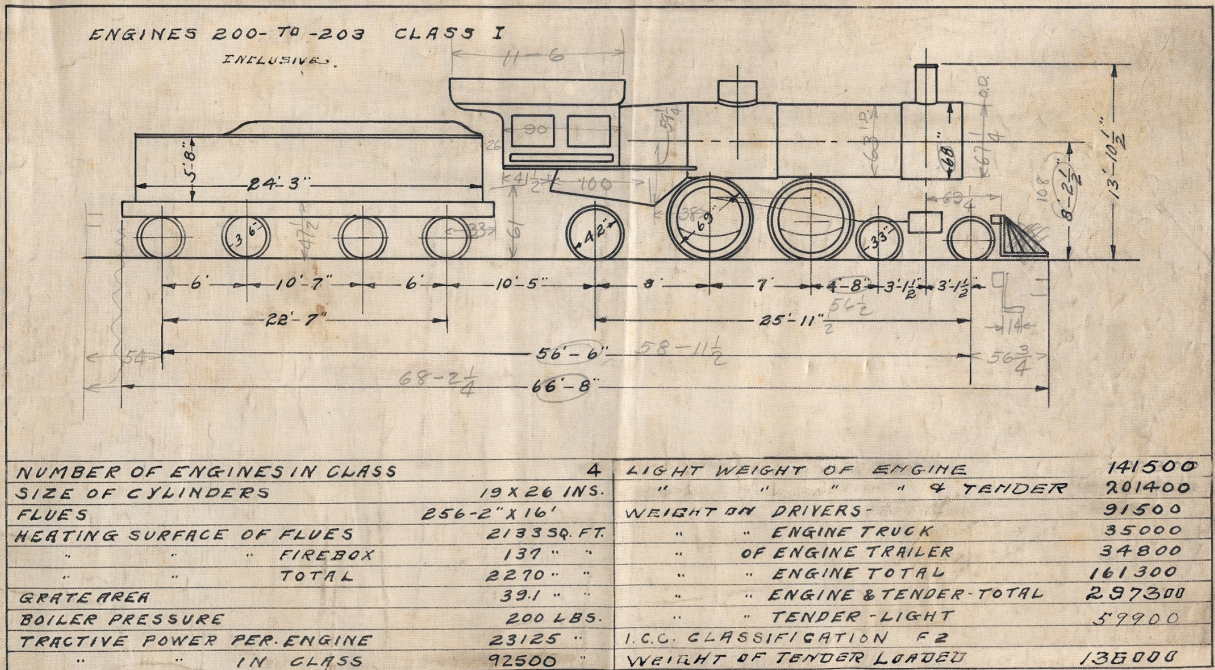 ENGINES 200-TO-203 CLASS I
INCLUSIVE.
11-6
90
26
59 1/4
63 I.D.
68"
67 1/4 O.D.
5'-8"
24'-3"
41 1/2
100
108
8'-2 1/2"
13'-10 1/2"
69 1/4
3'6"
47 1/2
33
61
42"
38
69"
33"
6' 10'-7" 6' 10'-5" 8' 7' 4'-8" 3'-1 1/2" 3'-1 1/2"
56 1/2
22'-7" 25'-11" 1/2
14
54 56'-6" 58-11 1/2 56 3/4
68-2 1/4
66'-8"
NUMBER OF ENGINES IN CLASS 4
SIZE OF CYLINDERS 19 X 26 INS.
FLUES 256-2" X 16'
HEATING SURFACE OF FLUES 2133 SQ. FT.
" " " FIREBOX 137 " "
" " TOTAL 2270 " "
GRATE AREA 39.1 " "
BOILER PRESSURE 200 LBS.
TRACTIVE POWER PER. ENGINE 23125 "
" " IN CLASS 92500 "
LIGHT WEIGHT OF ENGINE 141500
" " " " & TENDER 201400
WEIGHT ON DRIVERS- 91500
" " ENGINE TRUCK 35000
" OF ENGINE TRAILER 34800
" " ENGINE TOTAL 161300
" " ENGINE & TENDER-TOTAL 297300
" " TENDER-LIGHT 59900
I.C.C. CLASSIFICATION F2
WEIGHT OF TENDER LOADED 136000